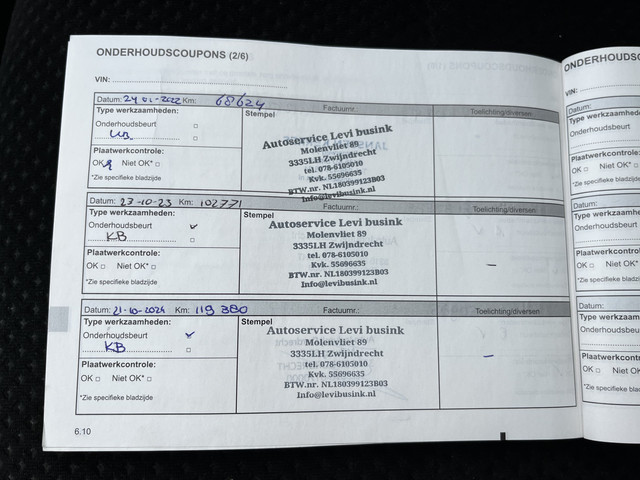 ONDERHOUDSCOUPONS (2/6)
VIN:
Datum: 24 01-2022 Km: 68624 Factuurnr.: Toelichting/diversen
Type werkzaamheden: Stempel
Onderhoudsbeurt
Plaatwerkcontrole:
OK Niet OK*
*Zie specifieke bladzijde
Autoservice Levi busink
Molenvliet 89
3335LH Zwijndrecht
tel. 078-6105010
Kvk. 55696635
BTW.nr. NL180399123B03
Info@levibusink.nl
Datum: 23-10-23 Km: 102771 Factuurnr.: Toelichting/diversen
Type werkzaamheden: Stempel
Onderhoudsbeurt
KB
Plaatwerkcontrole:
OK Niet OK*
*Zie specifieke bladzijde
Autoservice Levi busink
Molenvliet 89
3335LH Zwijndrecht
tel. 078-6105010
Kvk. 55696635
BTW.nr. NL180399123B03
Info@levibusink.nl
–
Datum: 21-10-2024 Km: 119 380 Factuurnr.: Toelichting/diversen
Type werkzaamheden: Stempel
Onderhoudsbeurt
KB
Plaatwerkcontrole:
OK Niet OK*
*Zie specifieke bladzijde
Autoservice Levi busink
Molenvliet 89
3335LH Zwijndrecht
tel. 078-6105010
Kvk. 55696635
BTW.nr. NL180399123B03
Info@levibusink.nl
–
6.10
ONDERHOUDSCOU
VIN:
Datum:
Type werkzaamheden
Onderhoudsbeurt
Plaatwerkcontrole
OK Niet OK
*Zie specifieke bladz
Datum:
Type werkzaamhe
Onderhoudsbeurt
Plaatwerkcontr
OK Niet O
*Zie specifieke bla
Datum:
Type werkzaam
Onderhoudsbeu
Plaatwerkcont
OK Niet
*Zie specifieke